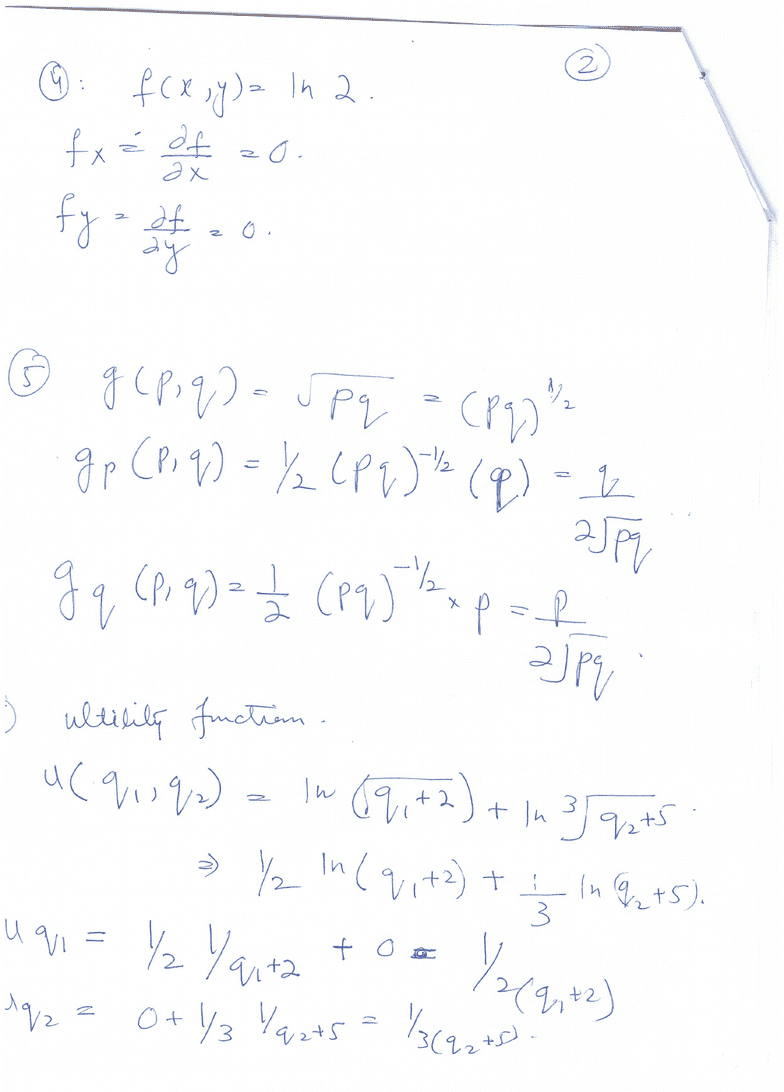 ②
④: f(x,y) = ln 2.
fx = ∂f/∂x = 0.
fy = ∂f/∂y = 0.
⑤ g(p,q) = √pq = (pq)^1/2
gp(p,q) = 1/2 (pq)^-1/2 (q) = q/2√pq
gq(p,q) = 1/2 (pq)^-1/2 × p = p/2√pq.
) ultility function.
u(q₁,q₂) = ln (√q₁+2) + ln ³√q₂+5.
⇒ 1/2 ln(q₁+2) + 1/3 ln(q₂+5).
uq₁ = 1/2 1/q₁+2 + 0 = 1/2(q₁+2)
q₂ = 0 + 1/3 1/q₂+5 = 1/3(q₂+5).